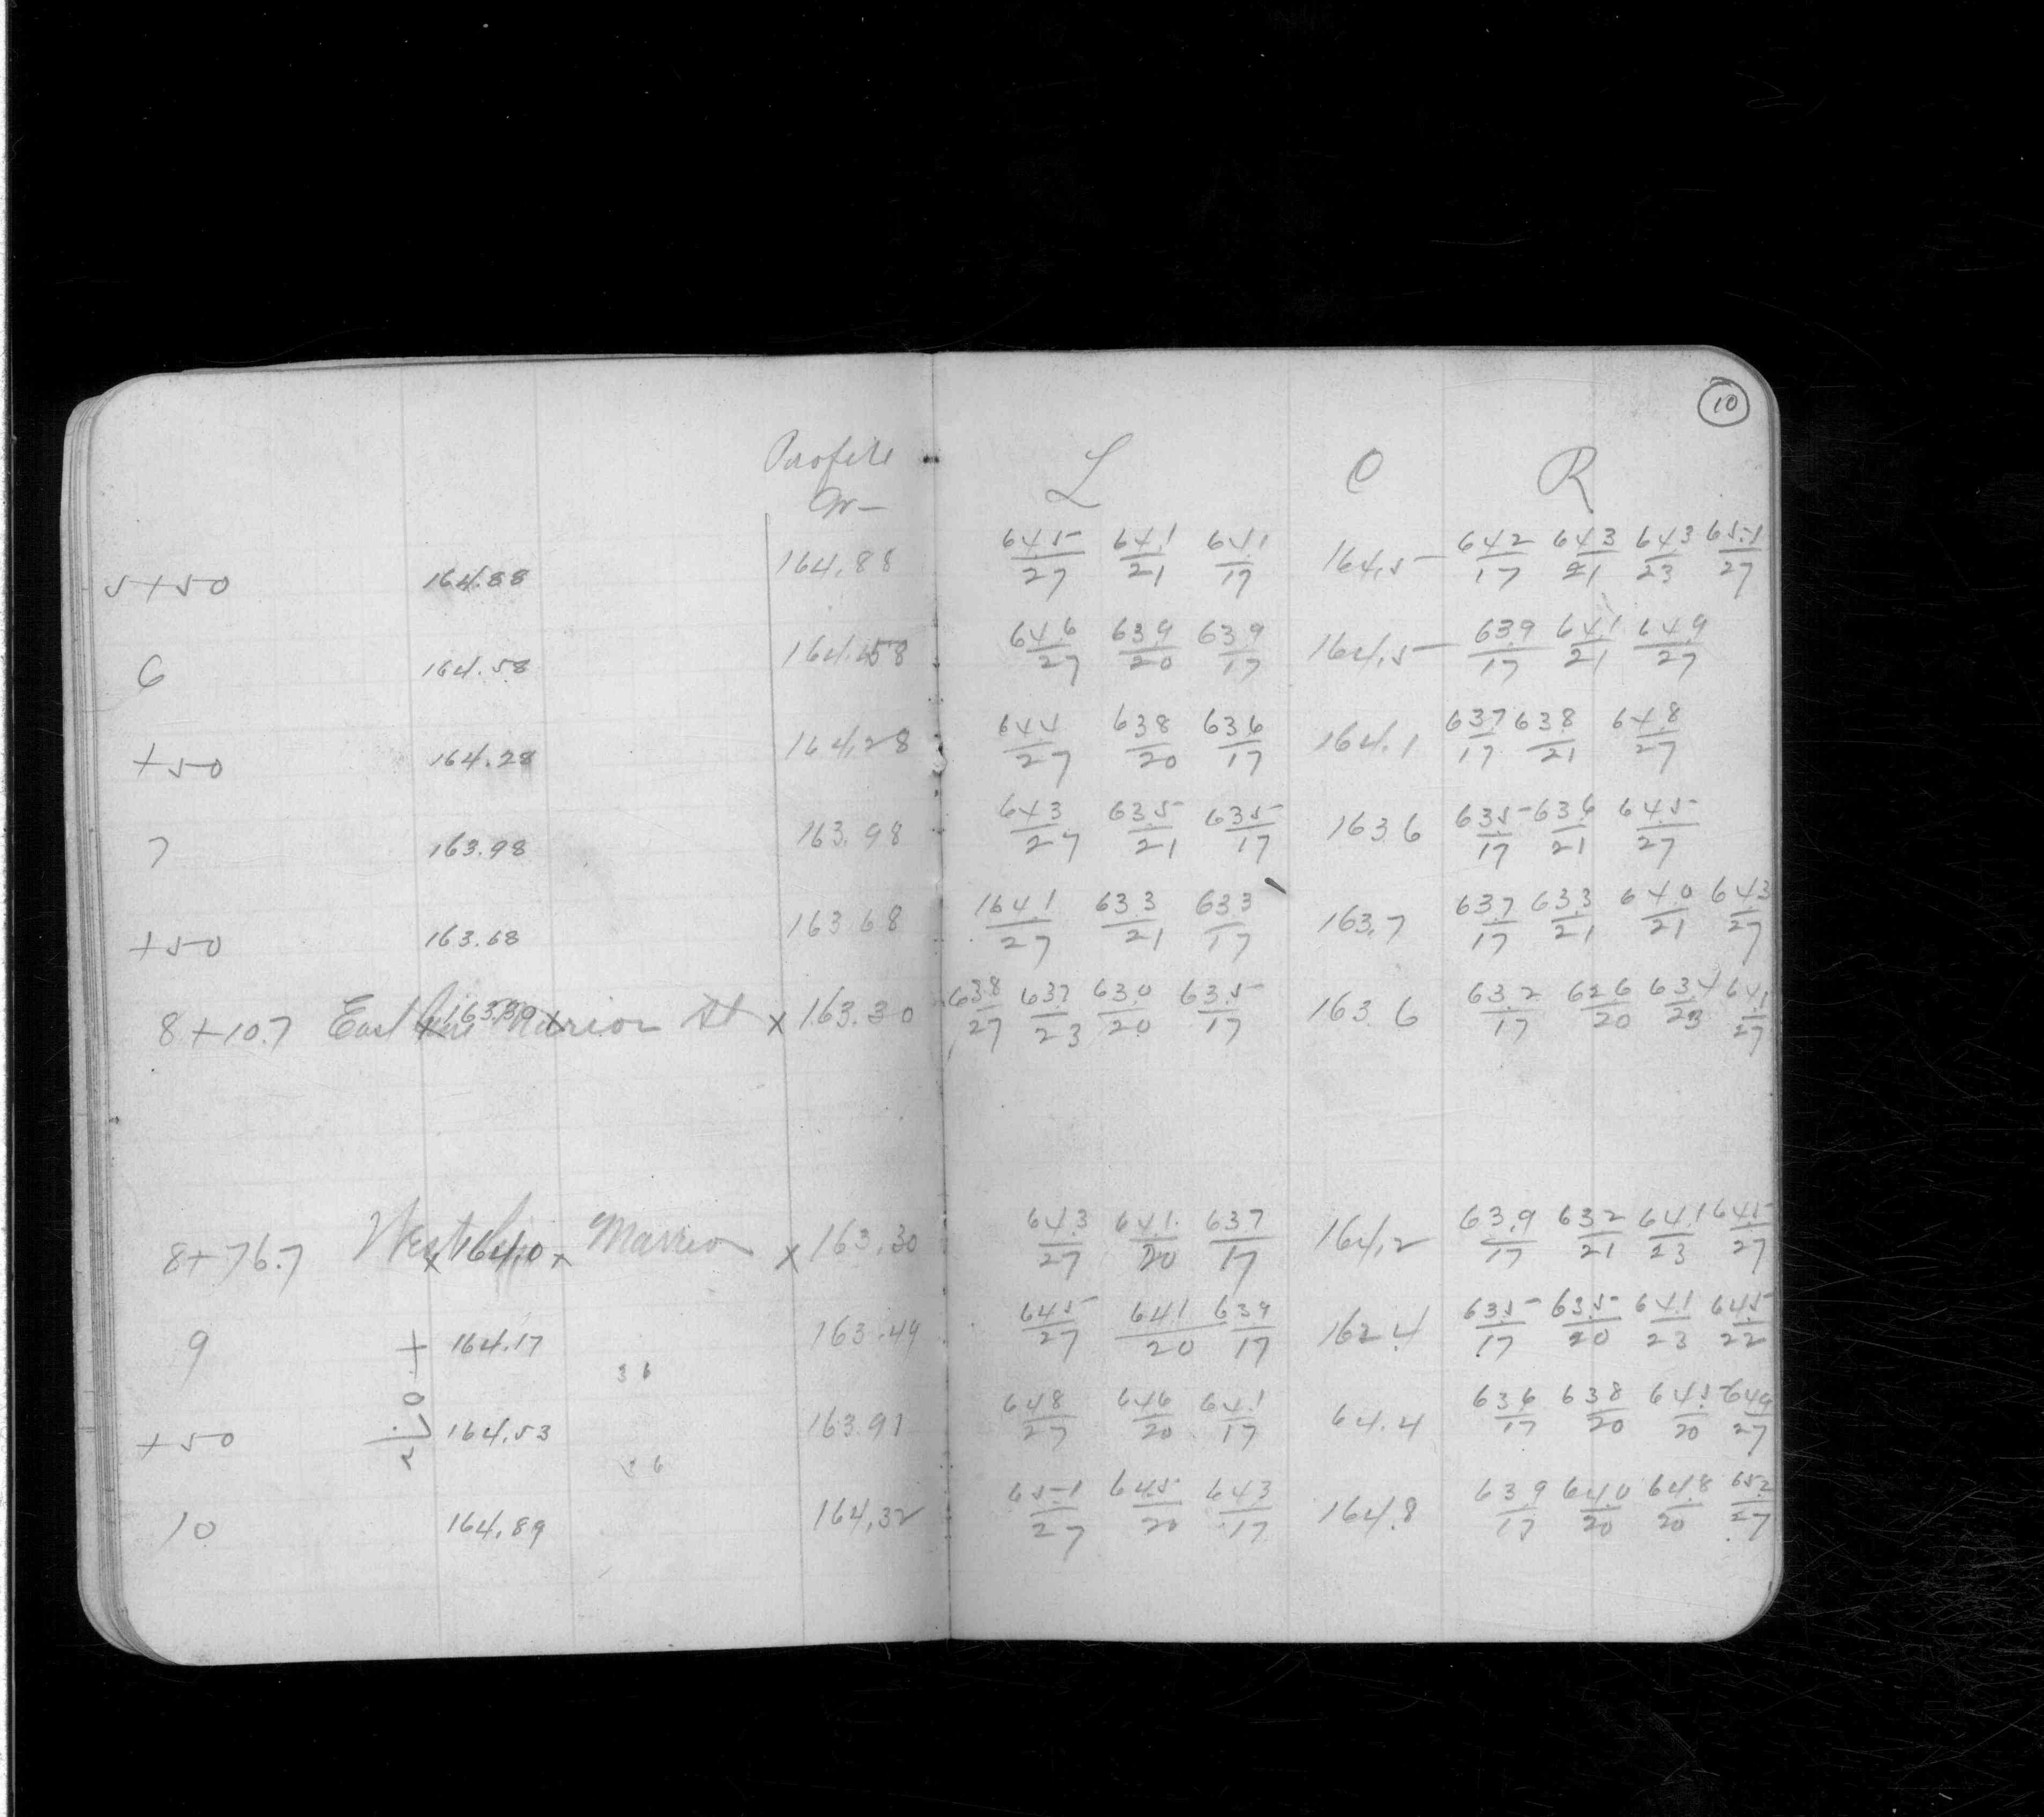 10
Profile
Gr-
L C R
5+50 164.88 164.88 64.5/27 64.1/21 64.1/17 164.5 64.2/17 64.3/21 64.3/23 65.1/27
6 164.58 164.58 64.6/27 63.9/20 63.9/17 164.5 63.9/17 64.1/21 64.9/27
+50 164.28 164.28 64.4/27 63.8/20 63.6/17 164.1 63.7/17 63.8/21 64.8/27
7 163.98 163.98 64.3/27 63.5/21 63.5/17 163.6 63.5/17 63.6/21 64.5/27
+50 163.68 163.68 164.1/27 63.3/21 63.3/17 163.7 63.7/17 63.3/21 64.0/21 64.3/27
8+10.7 East Line Marion St x 163.30 x x 163.30 63.8/27 63.7/23 63.0/20 63.5/17 163.6 63.2/17 62.6/20 63.4/23 64.1/27
8+76.7 West Line Marion x 164.0 x x 163.30 64.3/27 64.1/20 63.7/17 164.2 63.9/17 63.2/21 64.1/23 64.5/27
9 + 164.17 163.49 64.5/27 64.1/20 63.9/17 162.4 63.5/17 63.5/20 64.1/23 64.5/22
36
+50 164.53 163.91 64.8/27 64.6/20 64.1/17 64.4 63.6/17 63.8/20 64.5/20 64.9/27
36
10 164.89 164.32 65.1/27 64.5/20 64.3/17 164.8 63.9/17 64.0/20 64.8/20 65.2/27